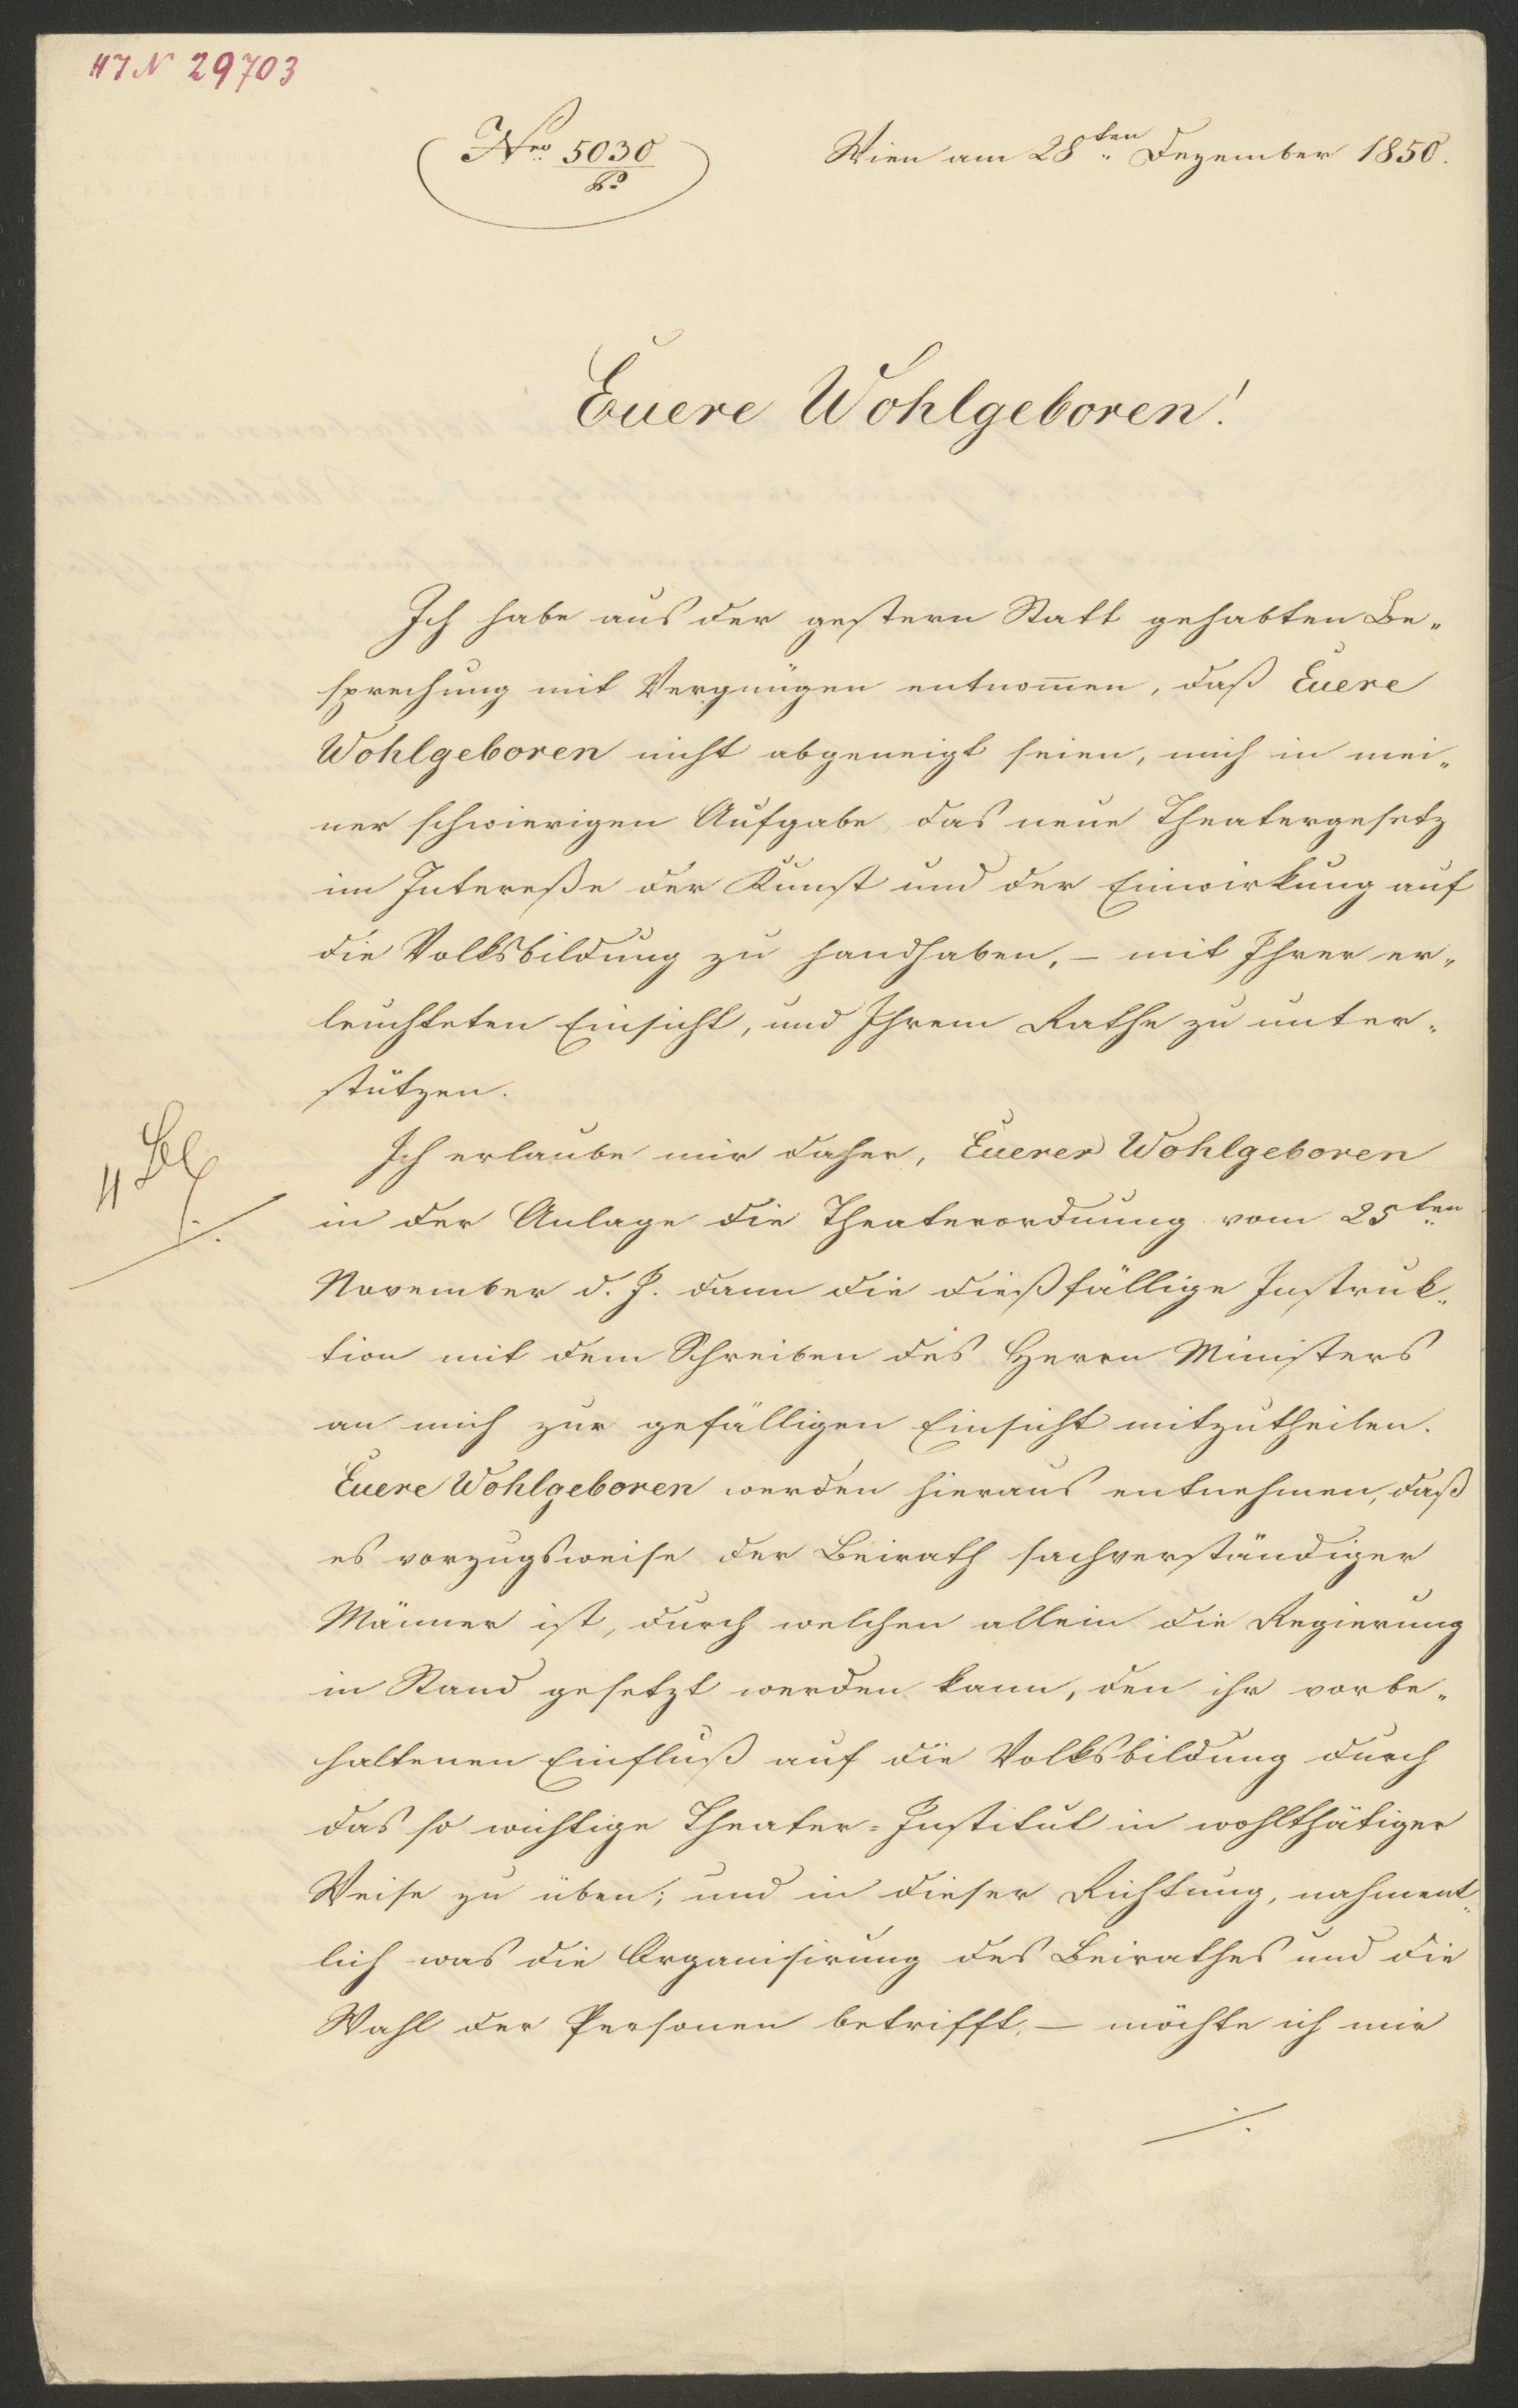 HIN 29703
Nro 5030
Wien am 28ten Dezember 1850.
Euere Wohlgeboren!
Ich habe aus der gestern Statt gehabten Be„
sprechung mit Vergnügen entnom̅en, daß Euere
Wohlgeboren nicht abgeneigt seien, mich in mei„
ner schwierigen Aufgabe das neue Theatergesetz
im Intereße der Kunst und der Einwirkung auf
die Volksbildung zu handhaben, – mit Ihrer er„
leuchteten Einsicht, und Ihrem Rathe zu unter„
stützen.
Ich erlaube mir daher, Euerer Wohlgeboren
in der Anlage die Theaterordnung vom 25ten
November d. J. dann die dießfällige Instruk„
tion mit dem Schreiben des Herrn Ministers
an mich zur gefälligen Einsicht mitzutheilen.
Euere Wohlgeboren werden hieraus entnehmen, daß
es vorzugsweise der Beirath sachverständiger
Männer ist, durch welchen allein die Regierung
in Stand gesetzt werden kann, den ihr vorbe„
haltenen Einfluß auf die Volksbildung durch
das so wichtige Theater=Institut in wohlthätiger
Weise zu üben; und in dieser Richtung, nahment„
lich was die Organisirung des Beirathes und die
Wahl der Personen betrifft, – möchte ich mir
./.